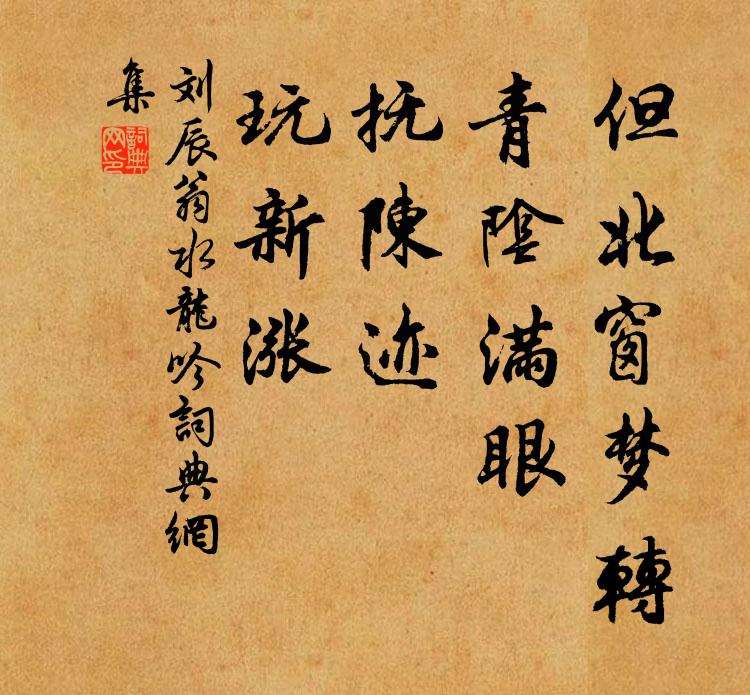 但北窗梦轉
青陰滿眼
抚陳迹
玩新漲
刘辰翁水龍吟詞典網
集
詞典
网印